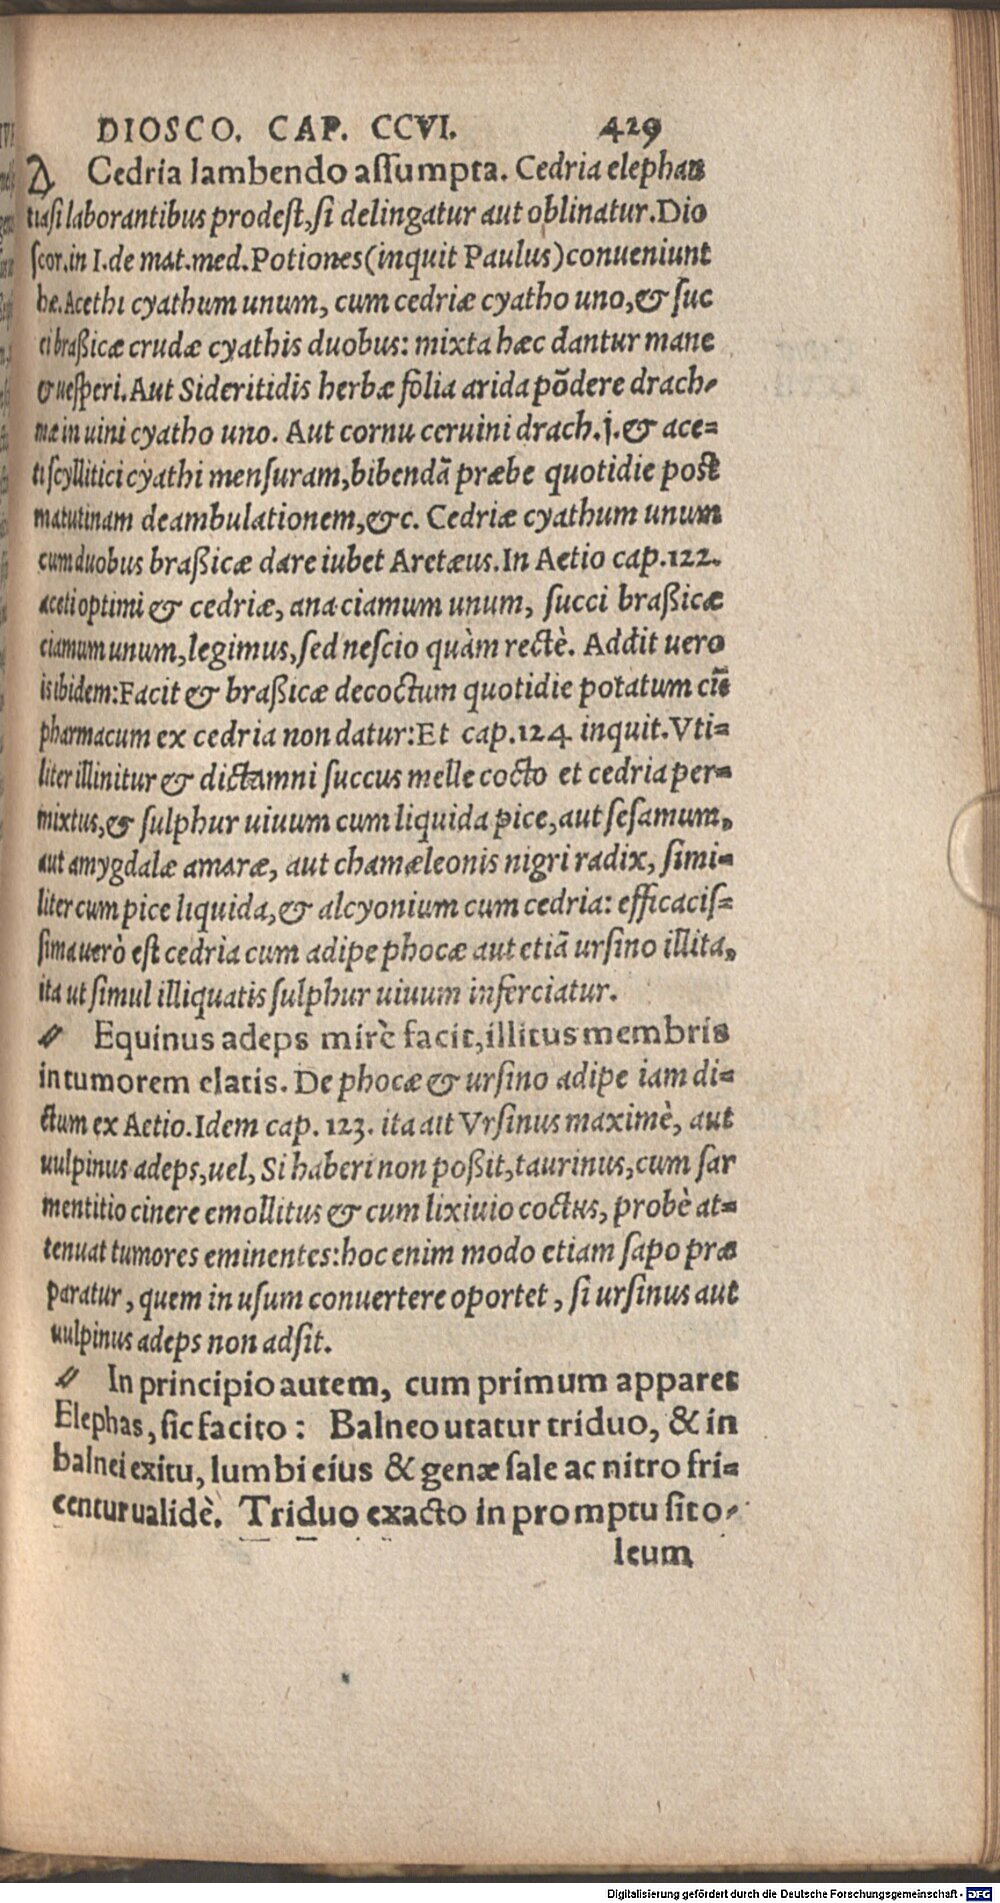 DIOSCO. CAP. CCVI. 429
Cedria lambendo assumpta. Cedria elephan
tiasi laborantibus prodest, si delingatur aut oblinatur. Dio
scor. in I. de mat. med. Potiones (inquit Paulus) conueniunt
hæ. Acethi cyathum unum, cum cedriæ cyatho uno, & suc
ci braßicæ crudæ cyathis duobus: mixta hæc dantur mane
& uesperi. Aut Sideritidis herbæ folia arida põdere drach-
mæ in uini cyatho uno. Aut cornu ceruini drach. j. & ace=
ti scyllitici cyathi mensuram, bibendã præbe quotidie post
matutinam deambulationem, &c. Cedriæ cyathum unum
cum duobus braßicæ dare iubet Aretæus. In Aetio cap. 122.
aceti optimi & cedriæ, ana ciamum unum, succi braßicæ
ciamum unum, legimus, sed nescio quàm rectè. Addit uero
is ibidem: Facit & braßicæ decoctum quotidie potatum cũ
pharmacum ex cedria non datur: Et cap. 124 inquit. Vti=
liter illinitur & dictamni succus melle cocto et cedria per=
mixtus, & sulphur uiuum cum liquida pice, aut sesamum,
aut amygdalæ amaræ, aut chamæleonis nigri radix, simi=
liter cum pice liquida, & alcyonium cum cedria: efficacis=
sima uerò est cedria cum adipe phocæ aut etiã ursino illita,
ita ut simul illiquatis sulphur uiuum inferciatur.
〃 Equinus adeps mirè facit, illitus membris
in tumorem elatis. De phocæ & ursino adipe iam di=
ctum ex Aetio. Idem cap. 123. ita ait Vrsinus maximè, aut
uulpinus adeps, uel, Si haberi non poßit, taurinus, cum sar
mentitio cinere emollitus & cum lixiuio coctus, probè at=
tenuat tumores eminentes: hoc enim modo etiam sapo præ
paratur, quem in usum conuertere oportet, si ursinus aut
uulpinus adeps non adsit.
〃 In principio autem, cum primum apparet
Elephas, sic facito: Balneo utatur triduo, & in
balnei exitu, lumbi eius & genæ sale ac nitro fri=
centur ualidè. Triduo exacto in promptu sit o-
leum
Digitalisierung gefördert durch die Deutsche Forschungsgemeinschaft - DFG